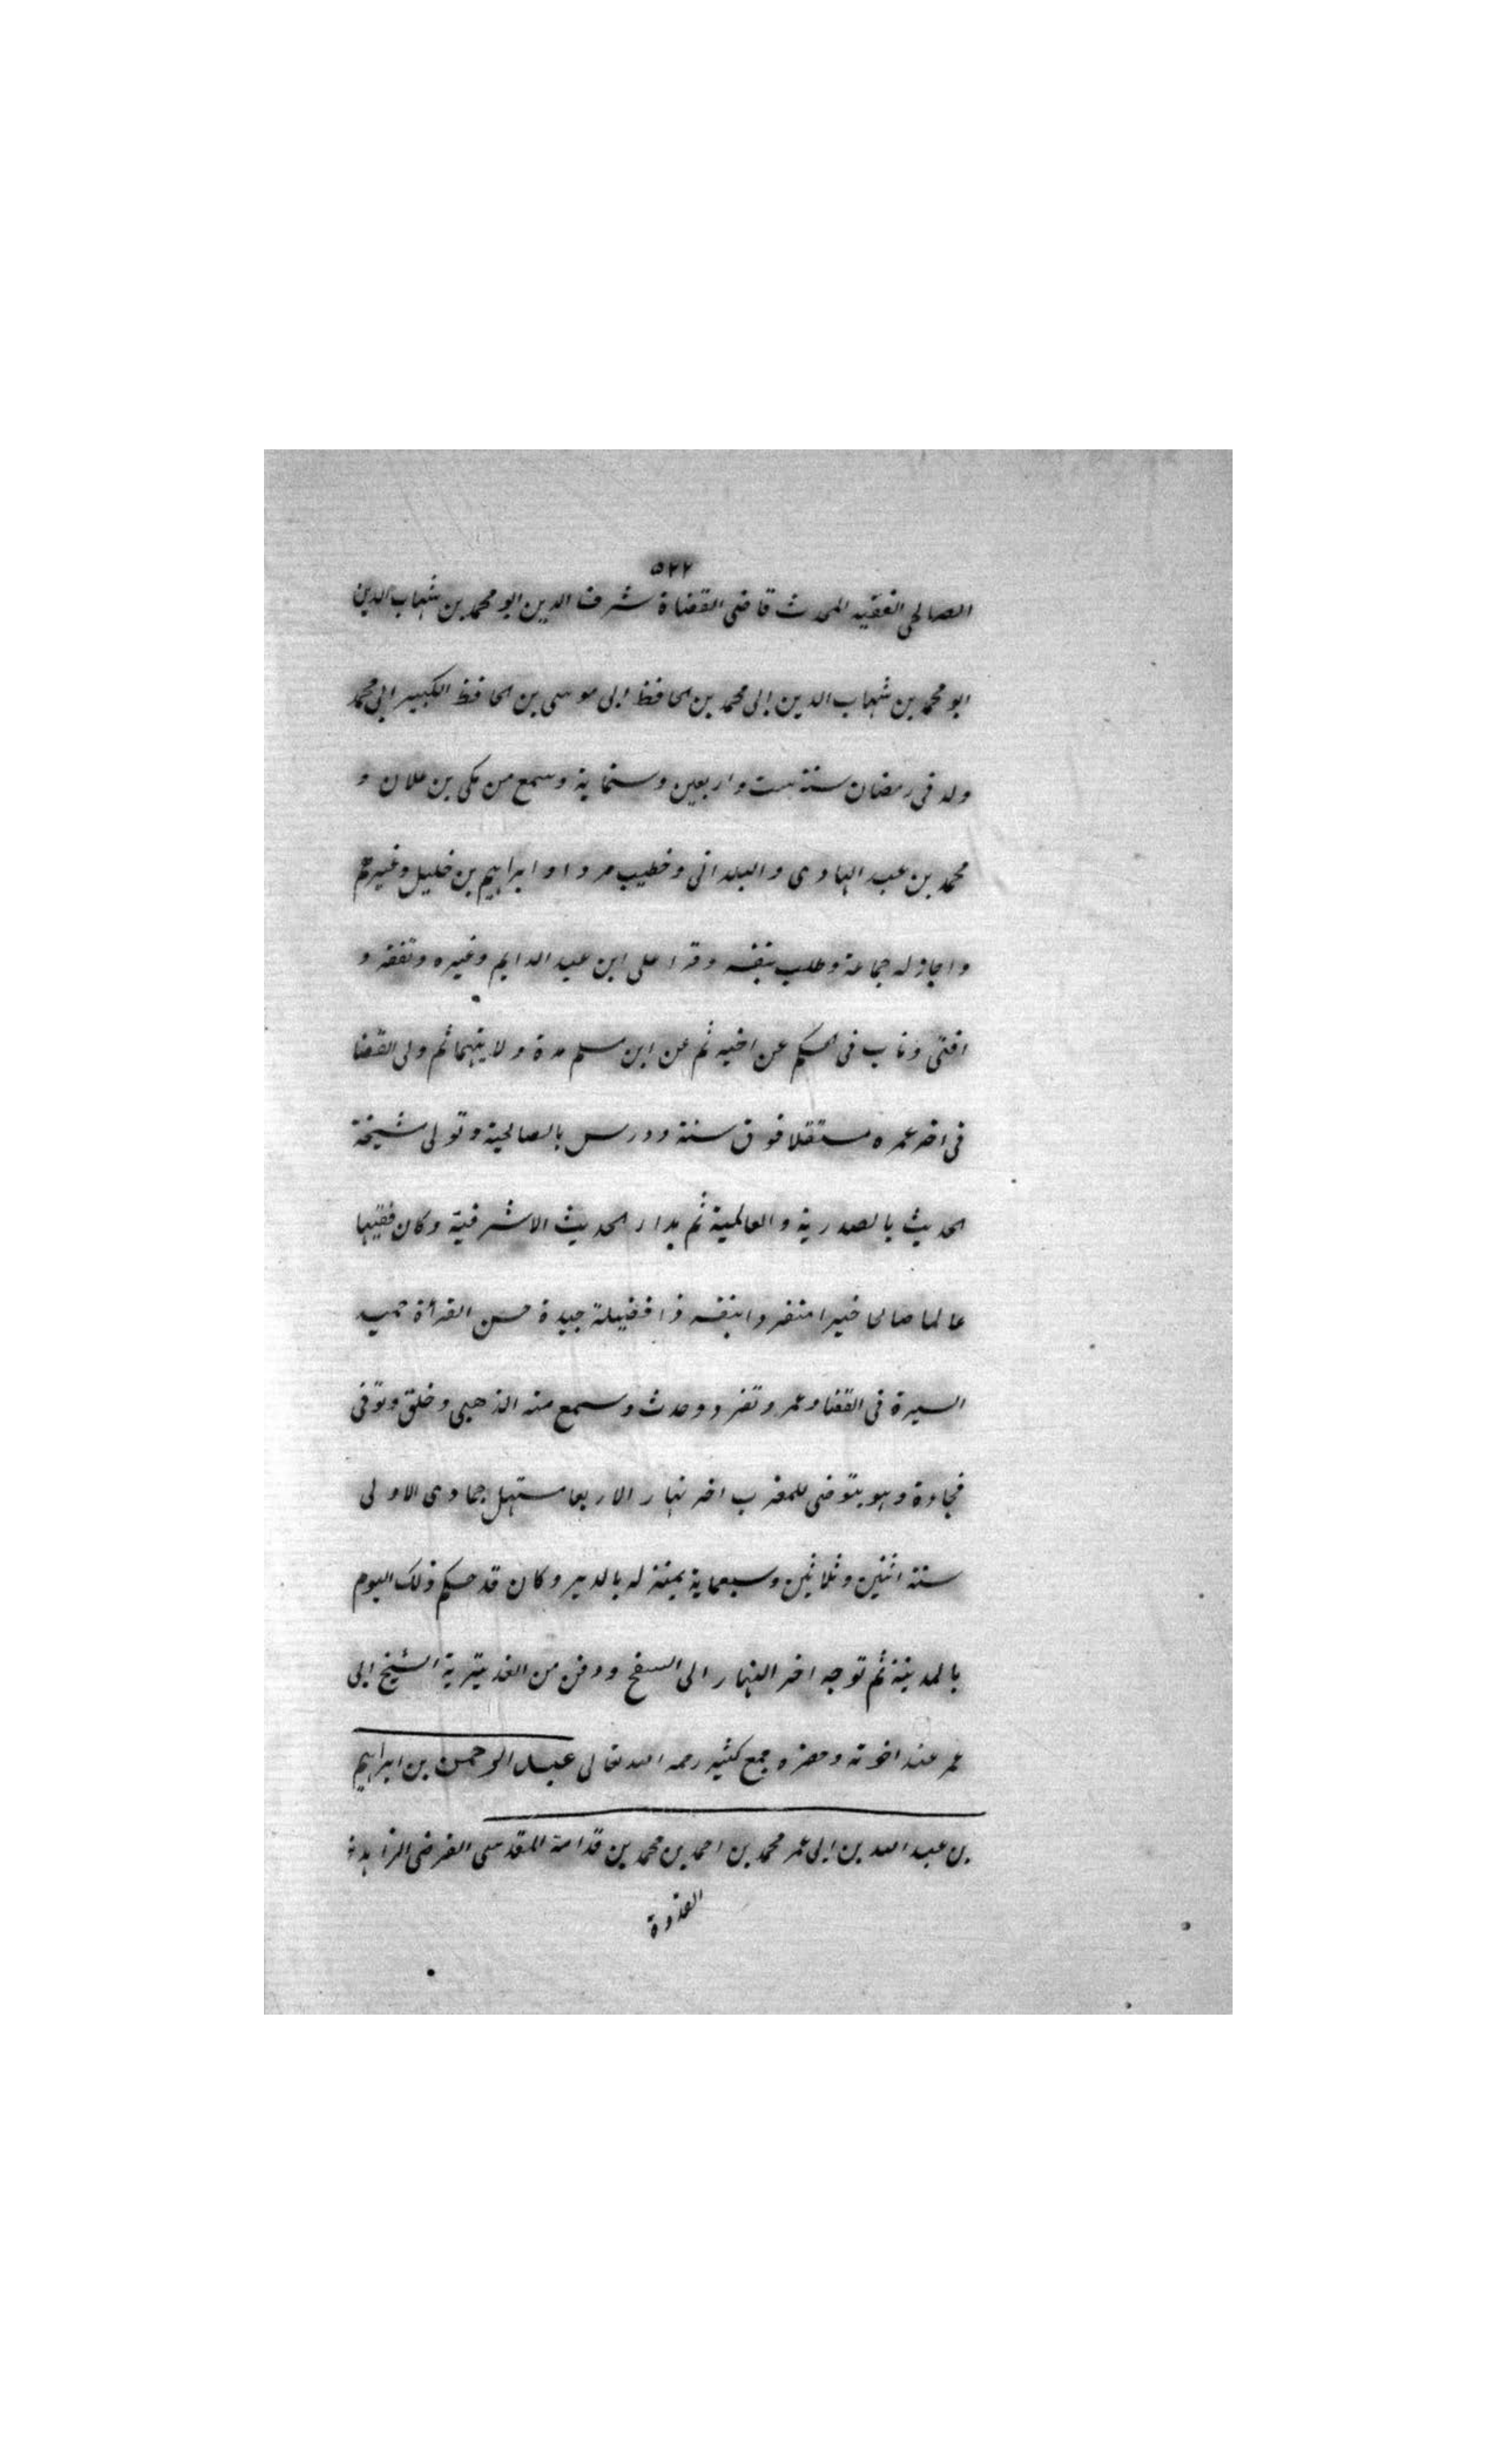 ٥٢٢
الصالحى الفقيه المحدث قاضى القضاة شرف الدين ابو محمد بن شهاب الدين
ابو محمد بن شهاب الدين ابى محمد بن الحافظ ابى موسى بن الحافظ الكبير ابى محمد
ولد فى رمضان سنة ست واربعين وستماية وسمع من مكى بن علان و
محمد بن عبد الهادى والبلدانى وخطيب مردا وابراهيم بن خليل وغيرهم
واجاز له جماعة وطلب بنفسه وقرا على ابن عبد الدايم وغيره وتفقه و
افتى وناب فى الحكم عن اخيه ثم عن ابن مسلم مدة ولايتهما ثم ولى القضا
فى اخر عمره مستقلا فوق سنة ودرس بالصالحية وتولى مشيخة
الحديث بالصدرية والعالمية ثم بدار الحديث الاشرفية وكان فقيها
عالما صالحا خيرا منفردا بنفسه ذا فضيلة جيدة حسن القرأة حميد
السيرة فى القضا وعمر وتفرد وحدث وسمع منه الذهبى وخلق وتوفى
فجاءة وهو يتوضى للمغرب اخر نهار الاربعا مستهل جمادى الاولى
سنة اثنين وثلاثين وسبعماية بمنزله بالدير وكان قد حكم ذلك اليوم
بالمدينة ثم توجه اخر النهار الى السفح ودفن من الغد بتربة الشيخ ابى
عمر عند اخوته وحضره جمع كثير رحمه الله تعالى عبد الرحمن بن ابراهيم
بن عبد الله بن ابى عمر محمد بن احمد بن محمد بن قدامة المقدسى الفرضى الزاهد
القدوة